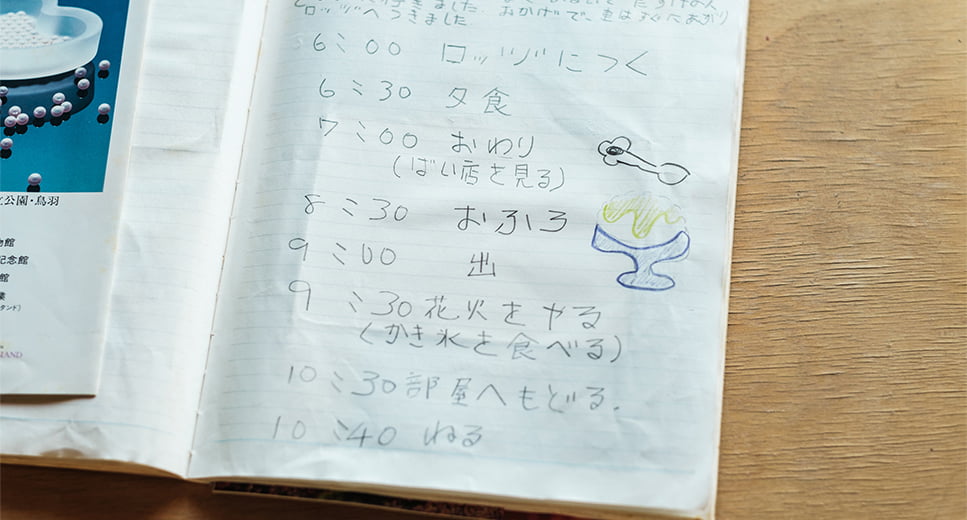 立公園・鳥羽
物館
記念館
館
業
タンド)
LAND
ロッヅへつきました おかげで、車はすぐへあがり
6:00 ロッッヅにつく
6:30 夕食
7:00 おわり
(ばい店を見る)
8:30 おふろ
9:00 出
9:30 花火をやる
(かき氷を食べる)
10:30 部屋へもどる.
10:40 ねる